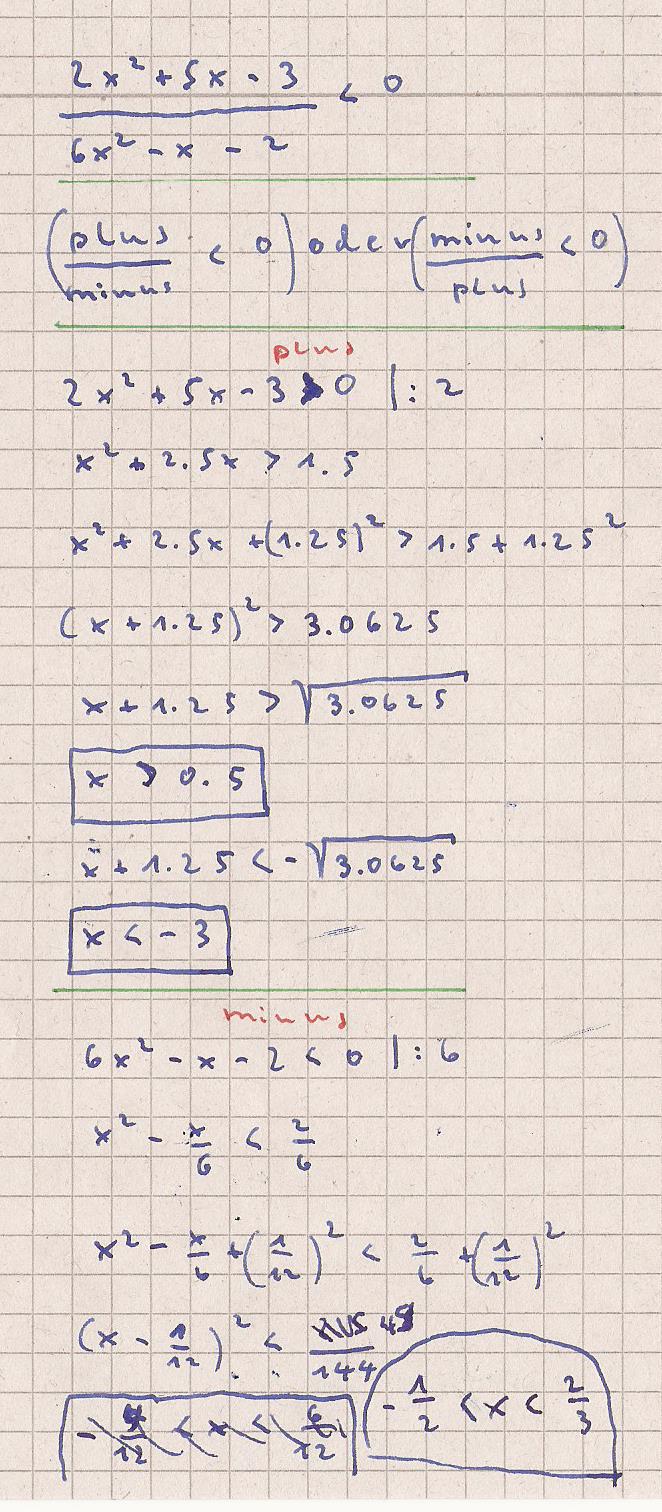 2x² + 5x - 3 < 0
6x² - x - 2
(plus/minus < 0) oder (minus/plus < 0)
plus
2x² + 5x - 3 > 0 |: 2
x² + 2.5x > 1.5
x² + 2.5x + (1.25)² > 1.5 + 1.25²
(x + 1.25)² > 3.0625
x + 1.25 > √3.0625
x > 0.5
x + 1.25 < -√3.0625
x < -3
minus
6x² - x - 2 < 0 |: 6
x² - x/6 < 2/6
x² - x/6 + (1/12)² < 2/6 + (1/12)²
(x - 1/12)² < 49/144
-1/2 < x < 2/3